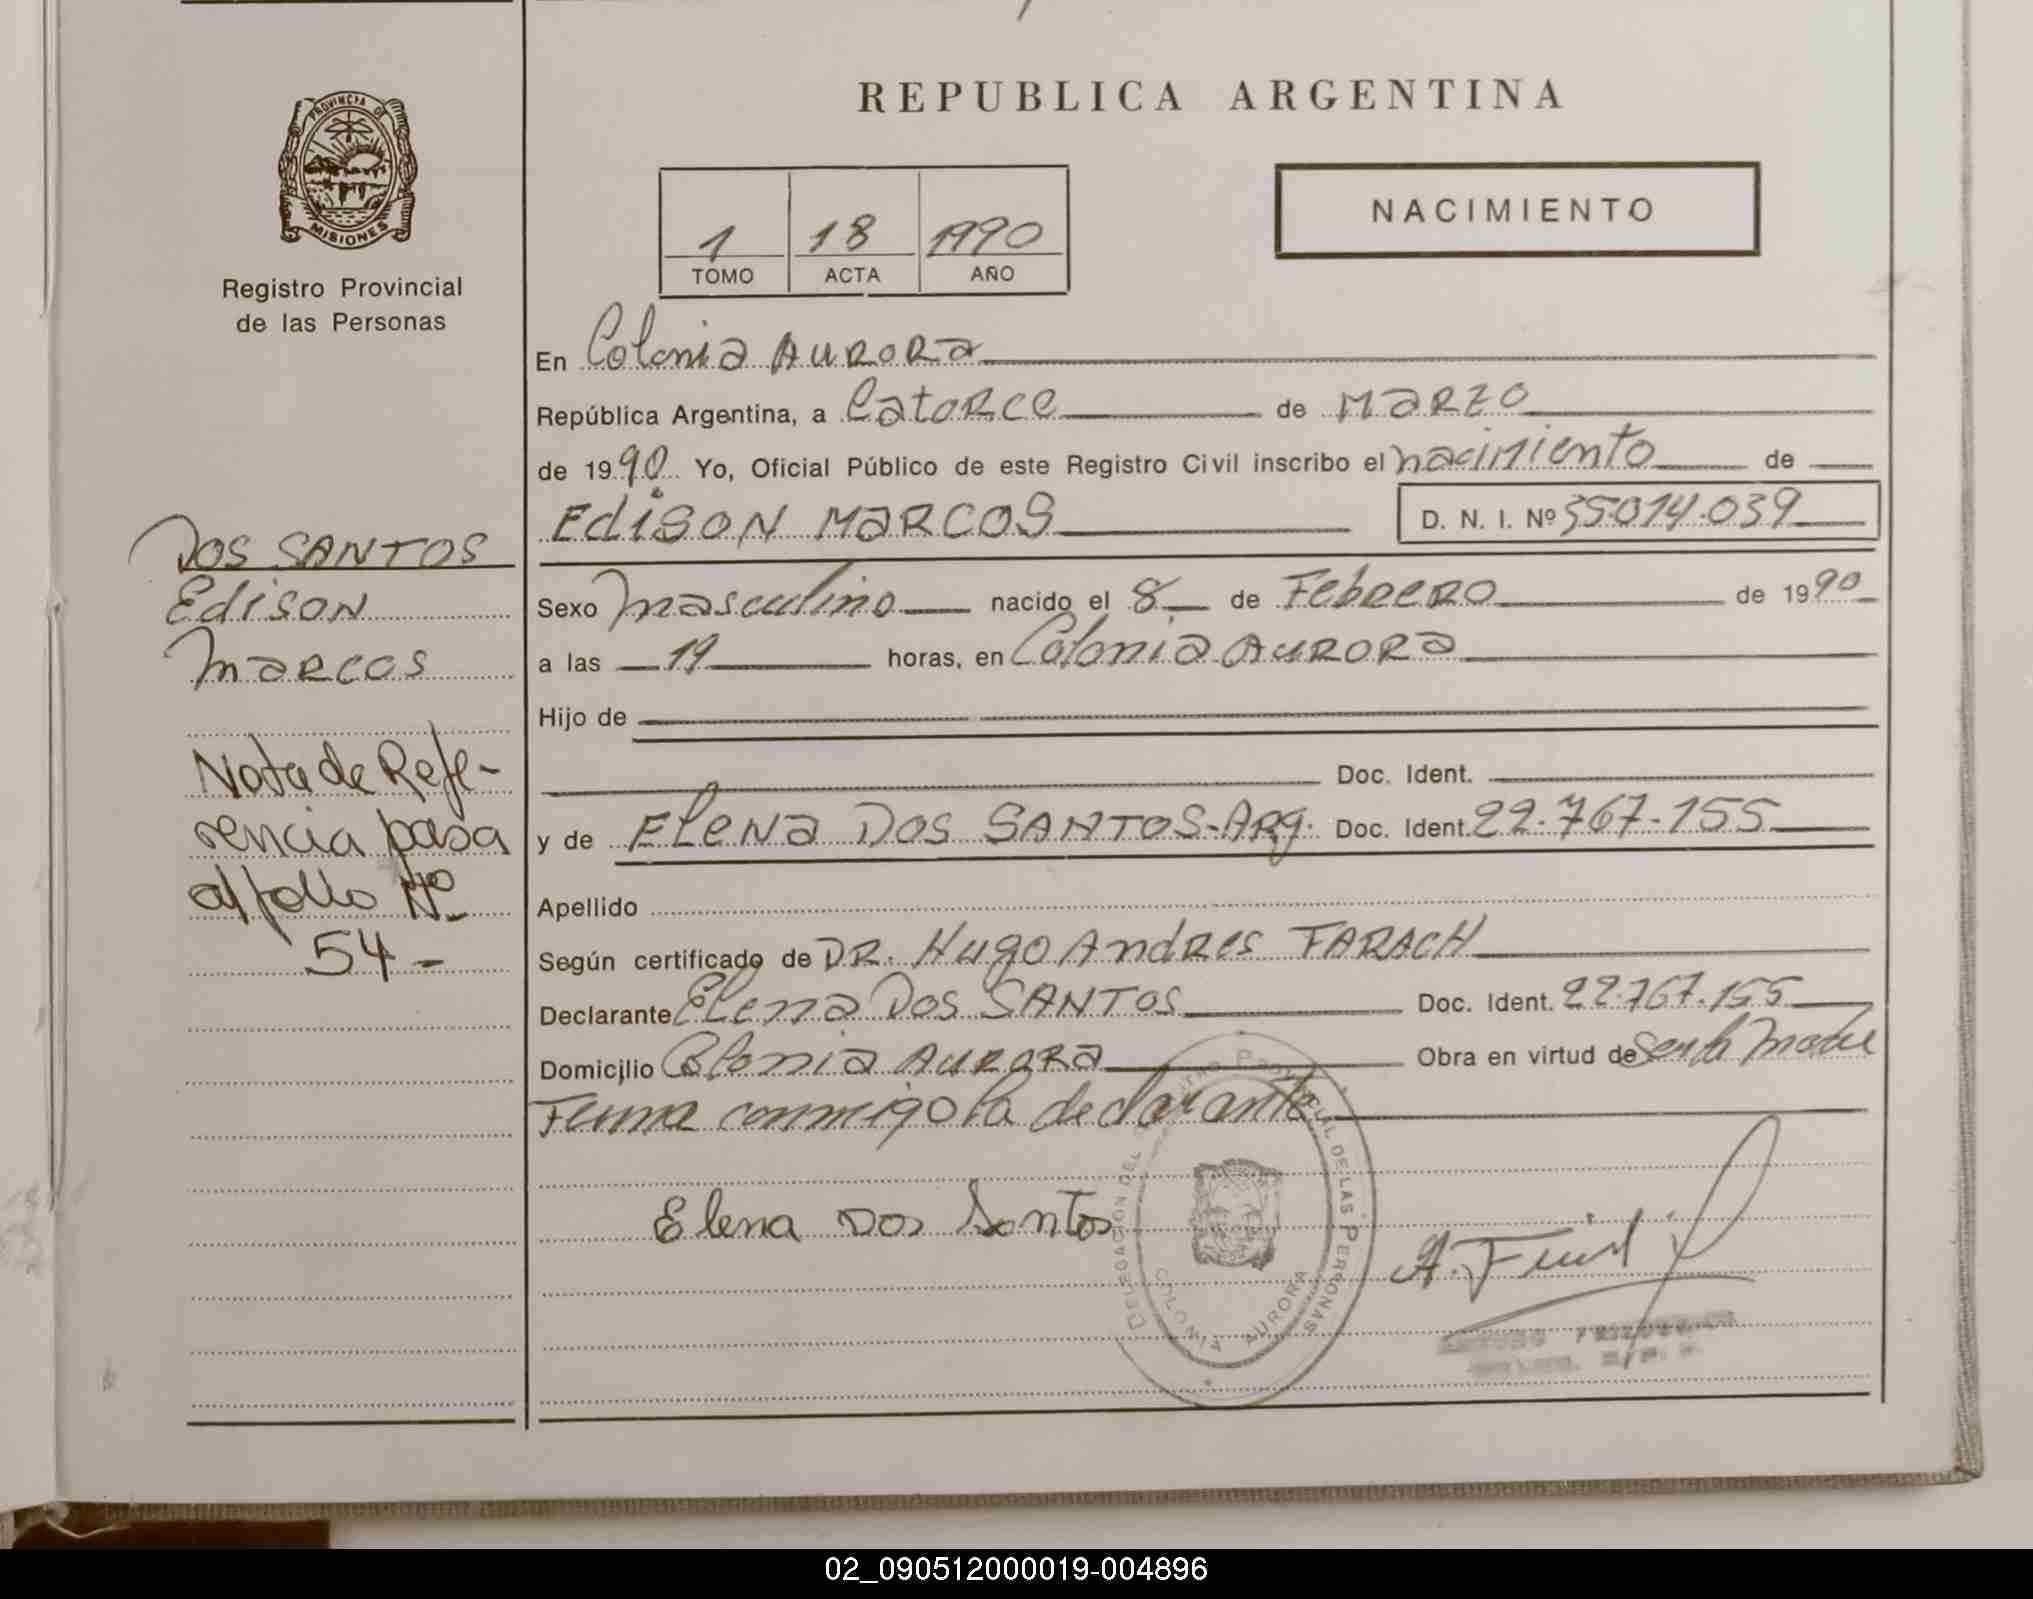 PROVINCIA DE
MISIONES
Registro Provincial
de las Personas
DOS SANTOS
Edison
Marcos
Nota de Refe-
rencia pasa
al folio Nº
54-
REPUBLICA ARGENTINA
1 18 1990
TOMO ACTA AÑO
NACIMIENTO
En Colonia Aurora
República Argentina, a Catorce de Marzo
de 1990 Yo, Oficial Público de este Registro Civil inscribo el nacimiento de
Edison Marcos D. N. I. Nº 35.014.039
Sexo masculino nacido el 8 de Febrero de 1990
a las 19 horas, en Colonia Aurora
Hijo de
Doc. Ident.
y de Elena Dos SANTOS-Arg. Doc. Ident. 22.767.155
Apellido
Según certificado de DR. Hugo Andres FARACH
Declarante Elena Dos SANTOS Doc. Ident. 22.767.155
Domicilio Colonia Aurora Obra en virtud de ser la Madre
Firma conmigo la declarante
Elena Dos Santos
DELEGACION DEL REGISTRO PROVINCIAL DE LAS PERSONAS
COLONIA AURORA
02_090512000019-004896